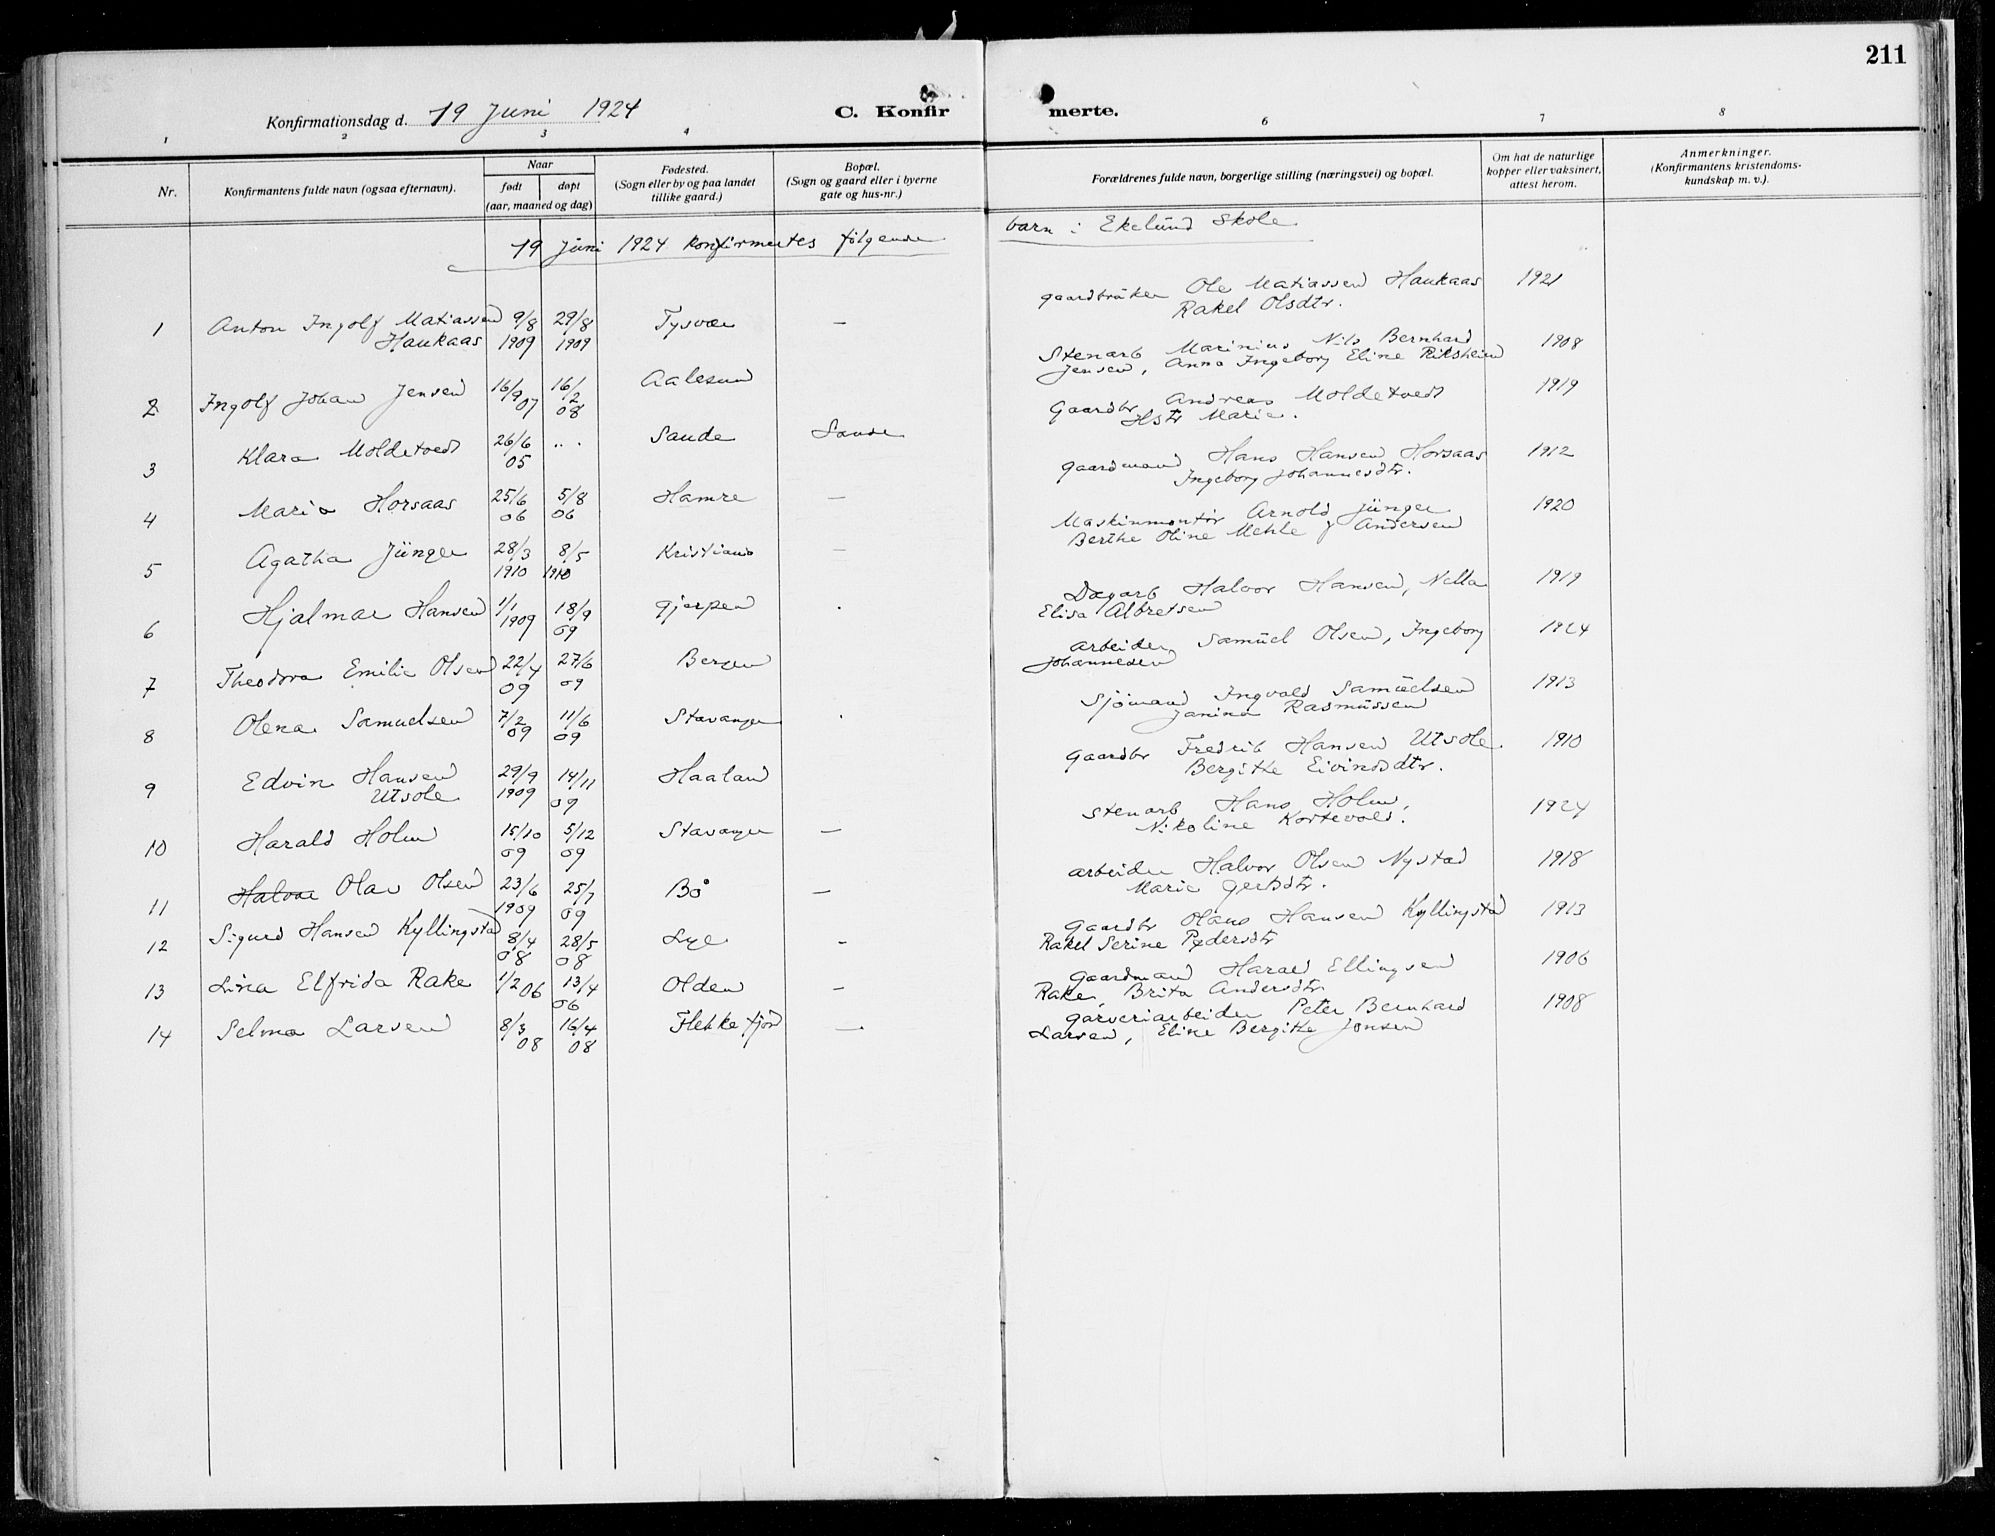 211
Konfirmationsdag d. 19 Juni 1924
C. Konfir merte.
1 2 3 4 6 7 8
Nr.
Konfirmantens fulde navn (ogsaa efternavn).
Naar
født døpt
(aar, maaned og dag)
Fødested.
(Sogn eller by og paa landet
tillike gaard.)
Bopæl.
(Sogn og gaard eller i byerne
gate og hus-nr.)
Forældrenes fulde navn, borgerlige stilling (næringsvei) og bopæl.
Om hat de naturlige
kopper eller vaksinert,
attest herom.
Anmerkninger.
(Konfirmantens kristendoms-
kundskap m. v.).
19 Juni 1924 konfirmertes følgende barn i Ekelund Skole
1 Anton Ingolf Matiassen 9/8 29/8 Tysvær —
Haukaas 1909 1909
gaardbruker Ole Matiassen Haukaas 1921
Rakel Olsdtr.
2 Ingolf Johan Jensen 16/9 07 16/2 08 Aalesund
Stenarb Marinius Nils Bernhard 1908
Jensen, Anna Ingeborg Eline Riksheim
3 Klara Moldetvedt 26/6 05 .. . Saude Saude
Gaardbr Andreas Moldetvedt 1919
Hstr Marie.
4 Maria Horsaas 25/6 06 5/8 06 Hamre —
gaardmand Hans Hansen Horsaas 1912
Ingeborg Johannesdtr.
5 Agatha Jünger 28/3 1910 8/5 1910 Kristiania —
Maskinmontør Arnold Jünger 1920
Berthe Oline Mehle f Andersen
6 Hjalmar Hansen 1/1 1909 18/9 09 Gjerpen .
Dagarb Halvor Hansen, Nella 1919
Elisa Albretsen
7 Theodora Emilie Olsen 22/4 09 27/6 09 Bergen
arbeider Samuel Olsen, Ingeborg 1924
Johannesen
8 Olena Samuelsen 7/2 09 11/6 09 Stavanger .
Sjömand Ingvald Samuelsen 1913
Janina Rasmussen
9 Edvin Hansen 29/9 14/11 Haaland
Utsole 1909 09
Gaardbr Fredrik Hansen Utsole 1910
Bergitte Eivindsdtr.
10 Harald Holm 15/10 09 5/12 09 Stavanger —
Stenarb Hans Holm, 1924
Nikoline Kortevold.
11 Halvor Olav Olsen 23/6 1909 25/7 09 Bö —
arbeider Halvor Olsen Nystad 1918
Marie Gertsdtr.
12 Sigurd Hansen Kyllingstad 8/4 08 28/5 08 Lye -
Gaardbr Hans Hansen Kyllingstad 1913
Rakel Serine Pedersdtr
13 Lina Elfrida Rake 1/2 06 13/4 06 Olden —
Gaardmand Harald Ellingsen 1906
Rake, Brita Andersdtr
14 Selma Larsen 8/3 08 16/4 08 Flekkefjord —
Garveriarbeider Peter Bernhard 1908
Larsen, Eline Bergitte Jonsen